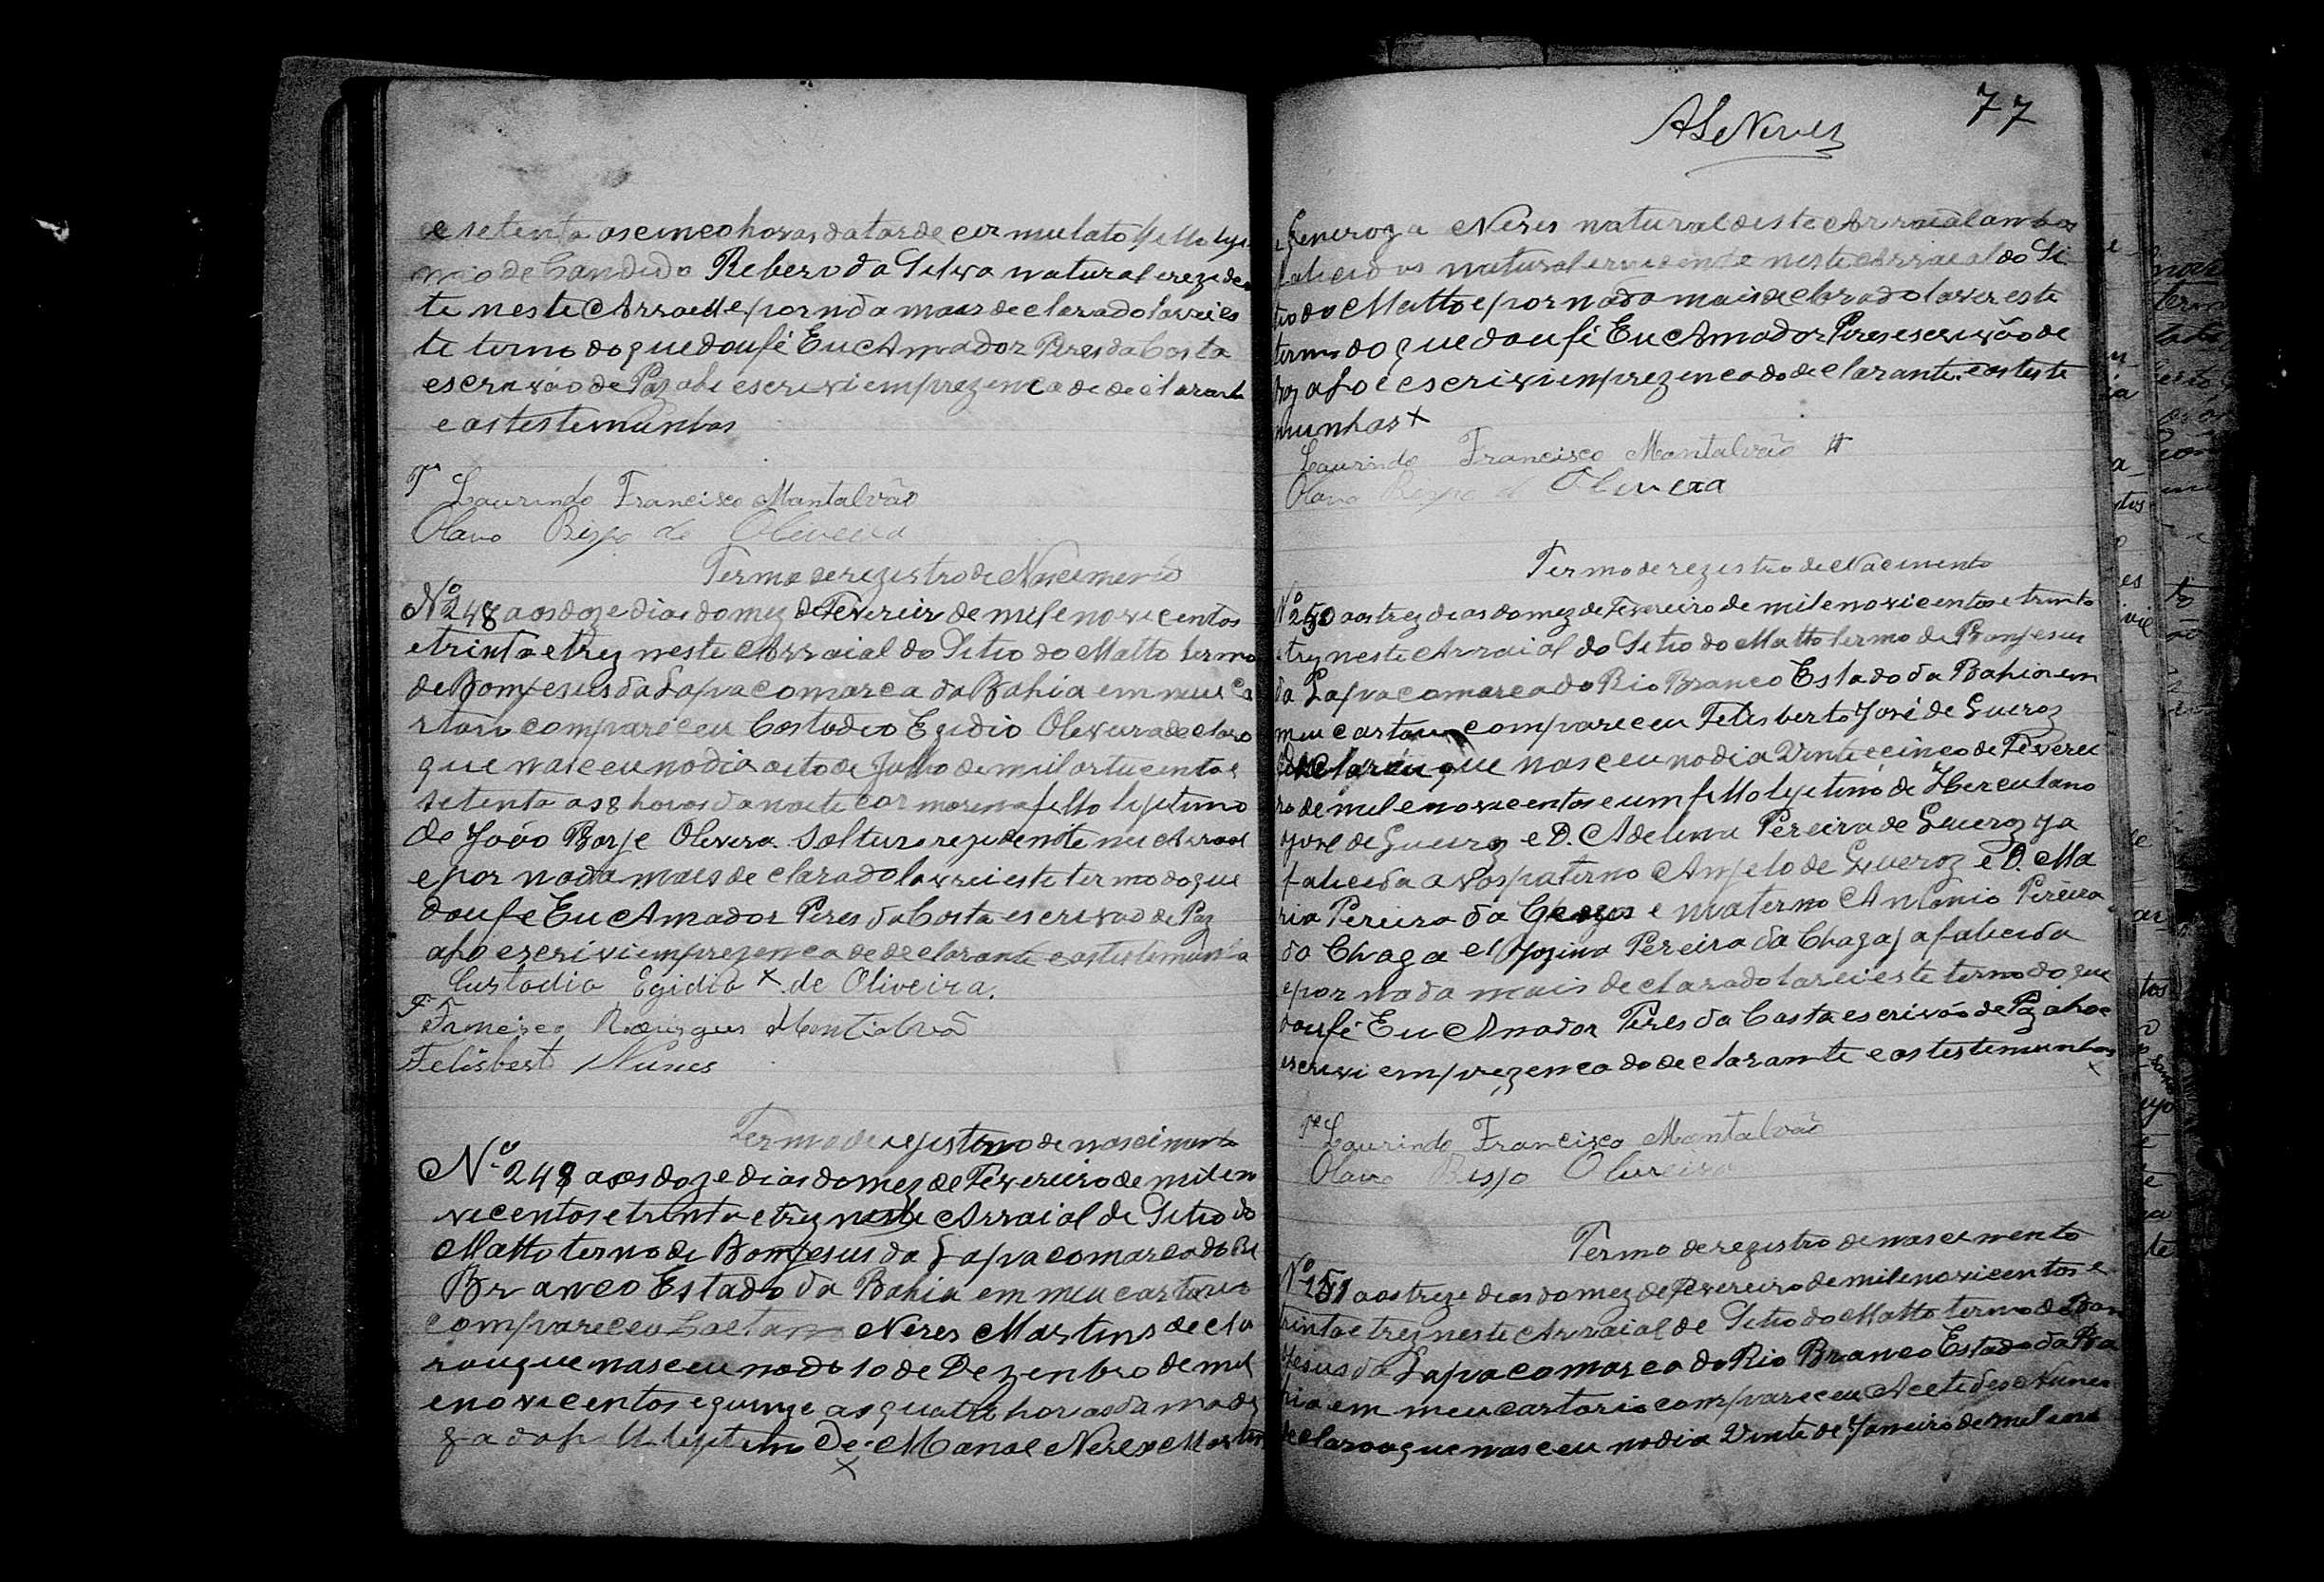 e setenta as cinco horas da tarde cor mulato filho lygi
mio de Candido Rebero da Silva natural rezeden
te neste Arraell e por nda mais declarado lavrei es
te terno do que dou fé Eu Amador Peres da Costa
escrivão de Paz ahi escrevi em prezenca de declarante
e as testemunhas
Ta Laurindo Francisco Montalvão
Olavo Bispo de Oliveira
Termo de rezistro de Nacimento
No 248 aos doze dias do mez de Fevereiro de mil e novicentos
e trinta e trez neste Arraial do Sitio do Matto termo
de Bom Jesus da Lapa comarca da Bahia em meu ca
rtorio compareceu Costodio Egidio Olevera declaro
que nasceu no dia oito de Julho de mil oitucentos e
setenta as 8 horas da noite cor morena filho lejitimo
de João Borje Olevera solturo rezidente neu Arraal
e por nada mais declarado lavrei este termo do que
dou fe Eu Amador Peres da Costa escrivão de Paz
aho escrivi em prezenca de declarante e as testemunha
Custodia Egidio x de Oliveira.
Ta Francisco Rodrigues Montalvão
Felisberto Nunes
Termo de rejistro de nascimento
No 249 aos doze dias do mez de Fevereiro de mil e no
vicentos e trinta e trez neste Arraial de Sitio do
Matto terno de Bom Jesus da Lapa comarca do Ri
Branco Estado da Bahia em meu cartorio
compareceu Caetano Neres Martins decla
rou que nasceu no dia 10 de Dezenbro de mil
e novicentos e quinze as quatro horas da madr
gada filho lejitimo De Manoel Neres Martins
x
ALeNeves
77
e Generoza Neres natural deste Arraial ambos
falicidos natural e rezidente neste Arraial do Si
tio do Matto e por nada mais declarado laver este
termo do que dou fé Eu Amador Peres escrivão de
Paz aho e escrivi em prezenca do declarante e as teste
munhas x
Laurindo Francisco Montalvão
Olavo Bispo d Olivera
Termo de rezistro de Nacimento
No 250 aos trez dias do mez de Fevereiro de mil e novicentos e trinta
e trez neste Arraial do Sitio do Matto termo de Bom Jesus
da Lapa comarca do Rio Branco Estado da Bahia em
meu cartorio compareceu Felisberto José de Queroz
declarou que nasceu no dia Vinte e cinco de Feverei
ro de mil e novicentos e um filho lejitimo de Herculano
José de Queiroz e D. Adelina Pereira de Queroz ja
falicida avós paterno Anjelo de Queroz e D. Ma
ria Pereira da Chagas e materno Antonio Pereira
da Chaga e Jozina Pereira da Chaga ja falicida
e por nada mais declarado larvei este terno do que
dou fé Eu Amador Peres da Costa escrivão de Paz aho e
escrivi em prezenca do declarante e as testemunhas
x
Ta Laurindo Francisco Montalvão
Olavo Bispo Oliveira
Termo de rezistro de nascimento
No 251 aos treze dias do mez de Fevereiro de mil e novicentos e
trinta e trez neste Arraial de Sitio do Matto termo de Bom
Jesus da Lapa comarca do Rio Branco Estado da Ba
hia em meu cartorio compareceu Acelides Nunes
declaro que nasceu no dia Vinte de Janeiro de mil e no